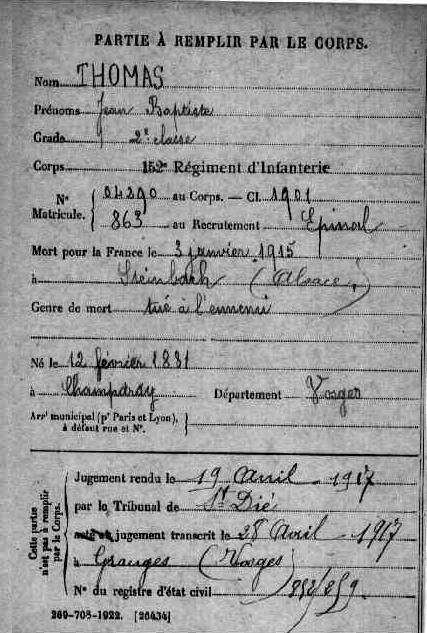 PARTIE À REMPLIR PAR LE CORPS.
Nom THOMAS
Prénoms Jean Baptiste
Grade 2e classe
Corps 152e Régiment d'Infanterie
No 04290 au Corps. — Cl. 1901
Matricule. 863 au Recrutement Epinal
Mort pour la France le 3 janvier 1915
à Steinbach (Alsace)
Genre de mort tué à l'ennemi
Né le 12 février 1881
à Champdray Département Vosges
Arrt municipal (pr Paris et Lyon),
à défaut rue et No.
Cette partie
n'est pas à remplir
par le Corps.
Jugement rendu le 19 Avril 1917
par le Tribunal de St Dié
jugement transcrit le 28 Avril 1917
à Granges (Vosges)
No du registre d'état civil
269-708-1922. [26434]